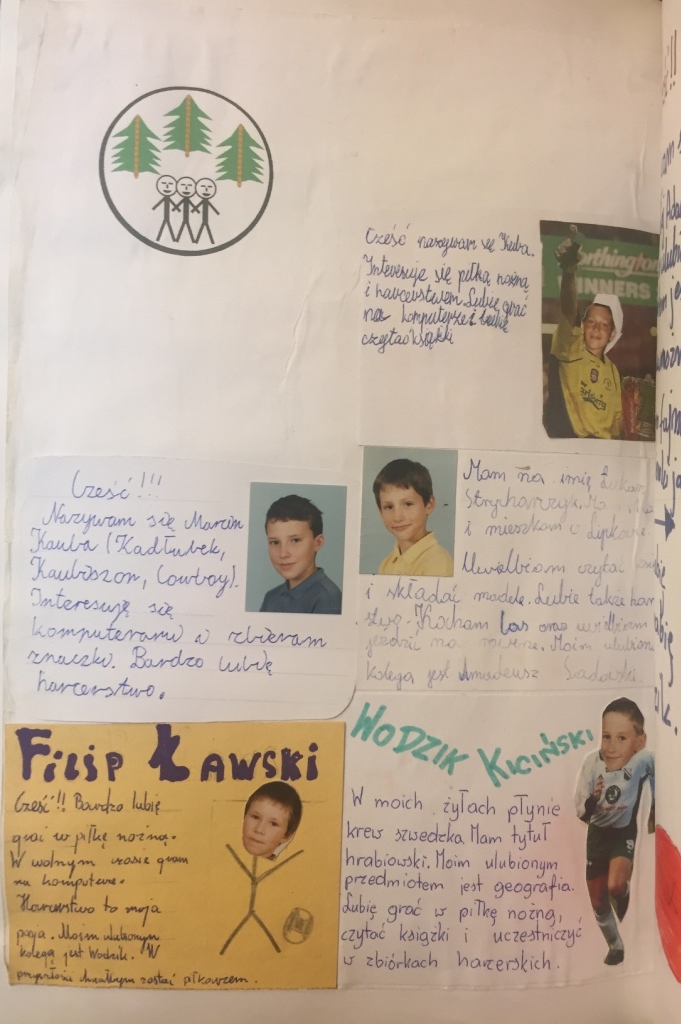 Cześć nazywam się Kuba.
Interesuje się piłką nożną
i harcerstwem. Lubię grać
na komputerze i lubię
czytać książki
orthington
WINNERS
Carlsberg
Cześć!!!
Nazywam się Marcin
Kauba (Kadłubek,
Kaubiszon, Cowboy).
Interesuję się
komputerami i zbieram
znaczki. Bardzo lubię
harcerstwo.
Mam na imię Łukasz
Strycharczyk.
i mieszkam w Lipkowie.
Uwielbiam czytać
i składać modele. Lubie także har
stwo. Kocham las oraz uwielbiam
jeździć na rowerze. Moim ulubion
kolegą jest Amadeusz Sadowski.
FILIP ŁAWSKI
Cześć!! Bardzo lubię
grać w piłkę nożną.
W wolnym czasie gram
na komputerze.
Harcerstwo to moja
pasja. Moim ulubionym
kolegą jest Wodzik. W
przyszłości chciałbym zostać piłkarzem.
WODZIK KICIŃSKI
W moich żyłach płynie
krew szwedzka. Mam tytuł
hrabiowski. Moim ulubionym
przedmiotem jest geografia.
Lubię grać w piłkę nożną,
czytać książki i uczestniczyć
w zbiórkach harcerskich.